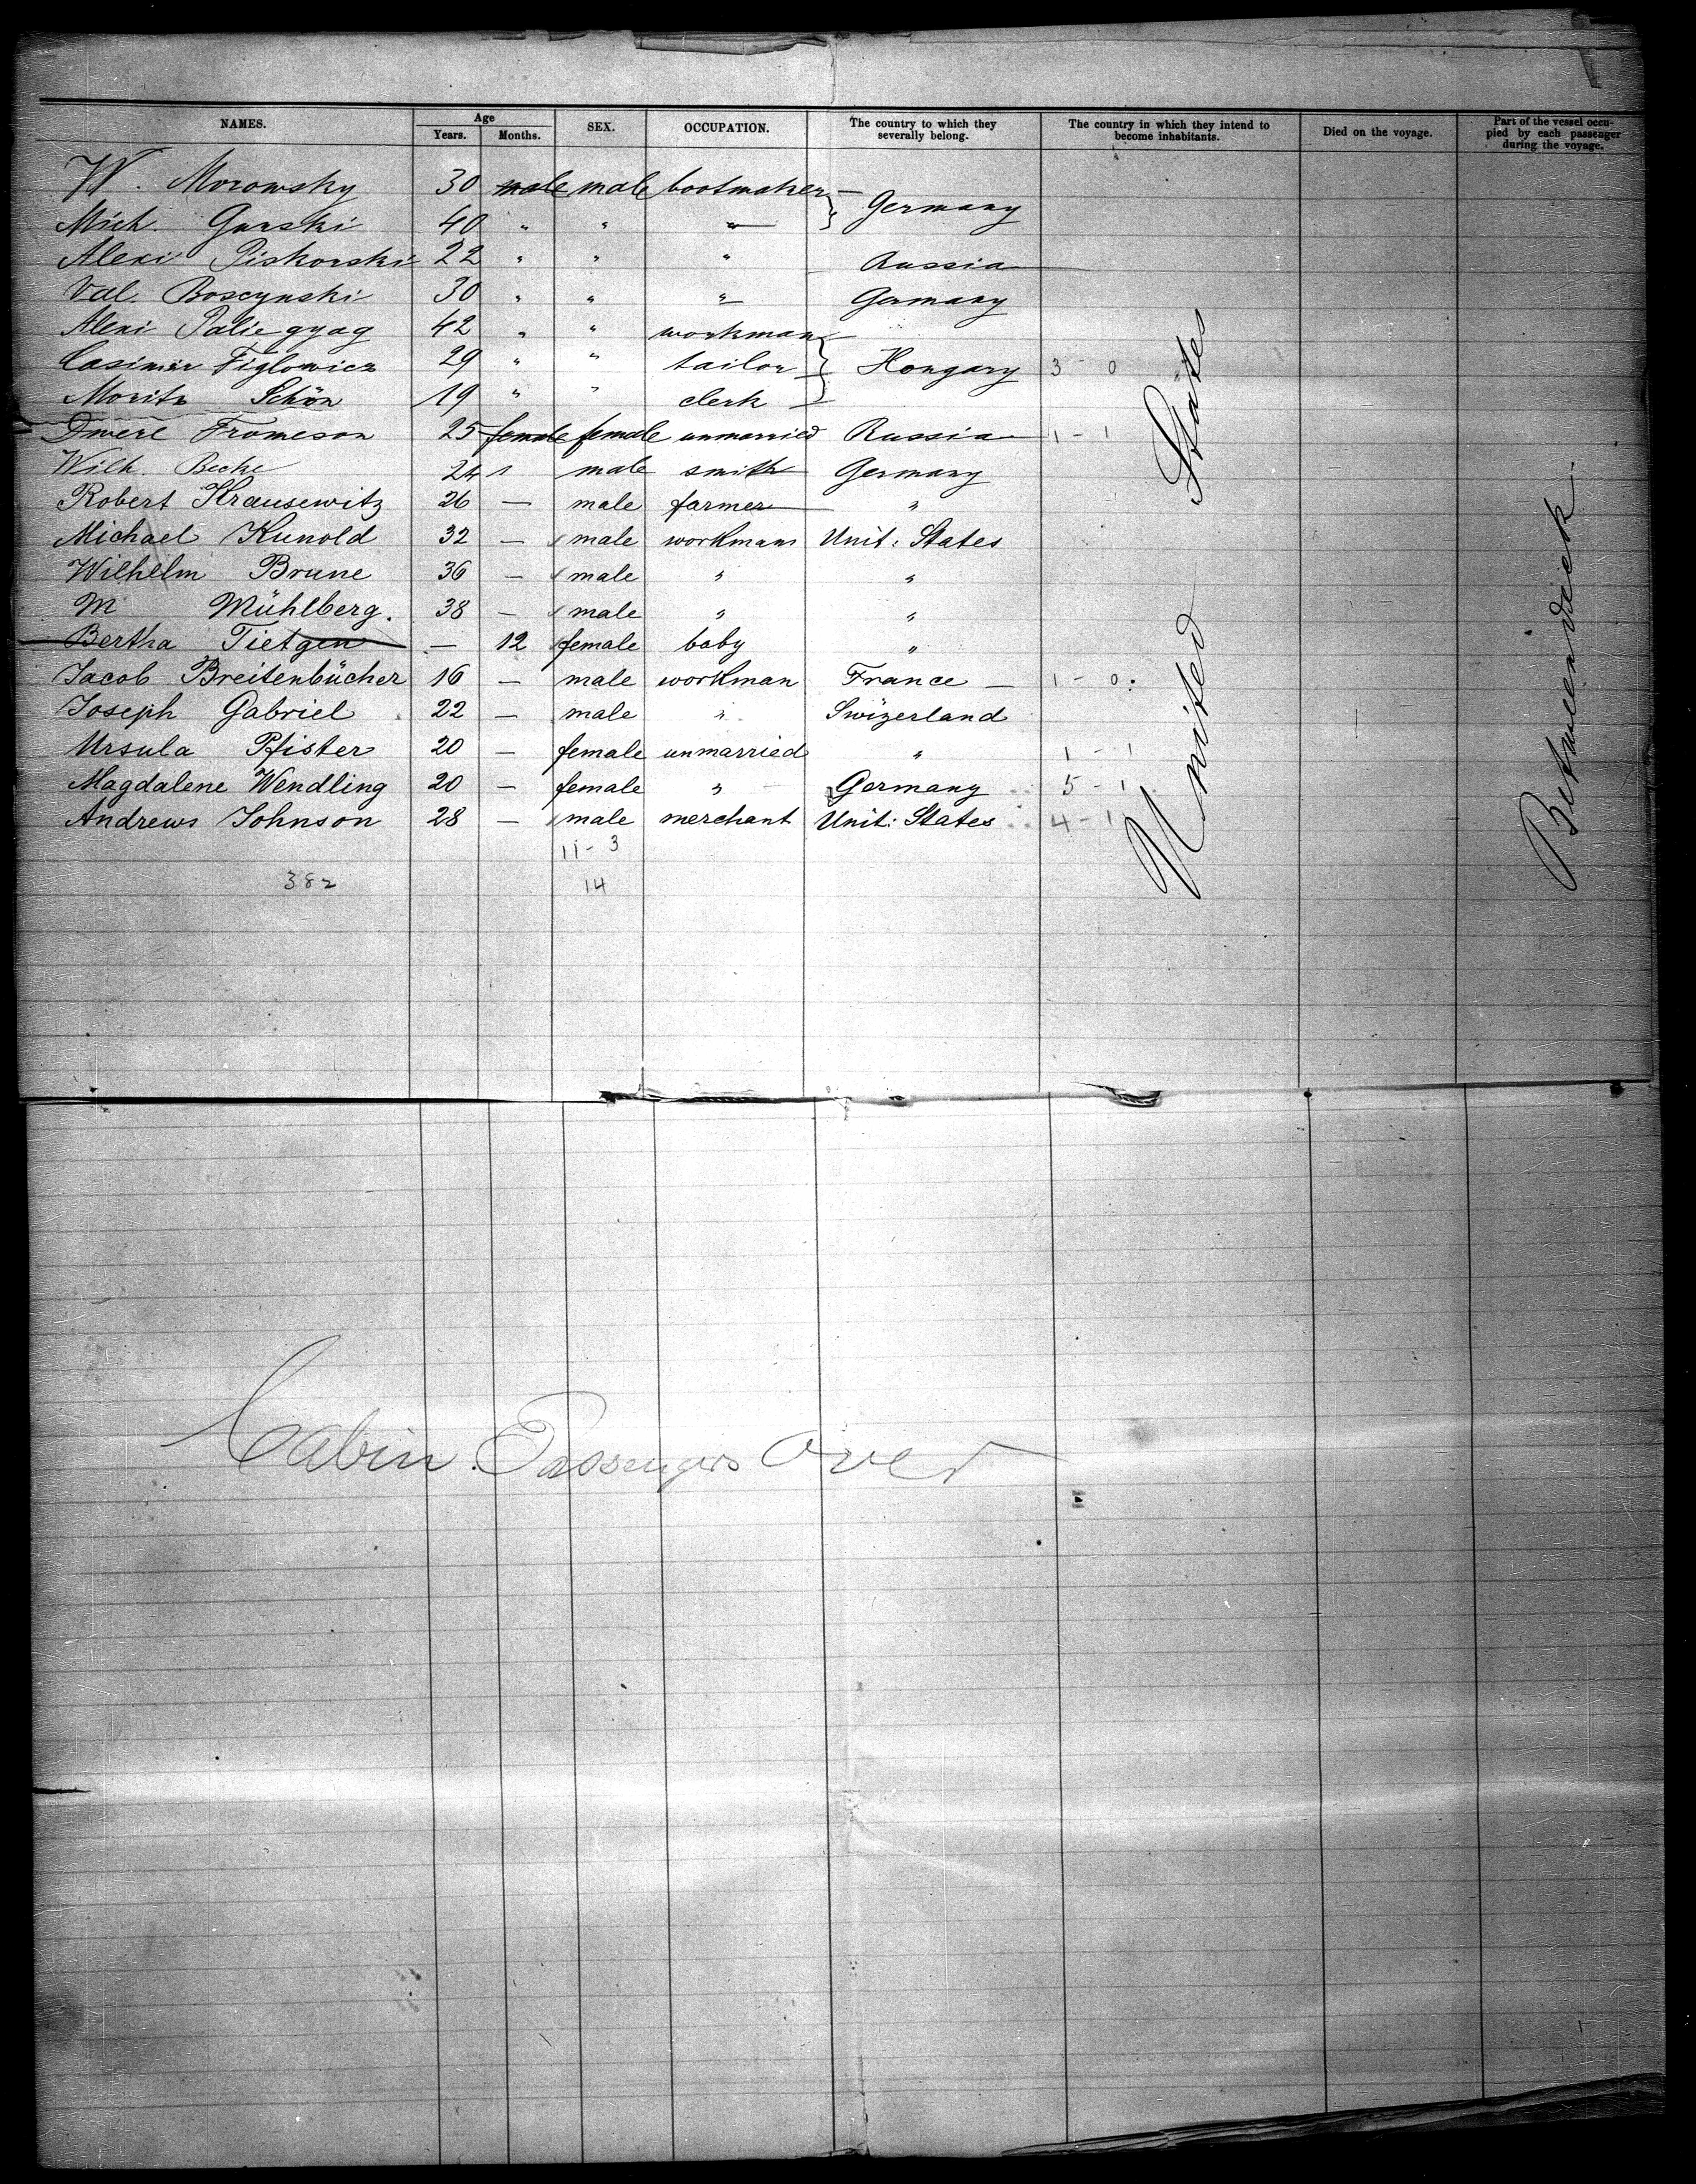 NAMES. Age Years. Months. SEX. OCCUPATION. The country to which they severally belong. The country in which they intend to become inhabitants. Died on the voyage. Part of the vessel occupied by each passenger during the voyage.
W. Morowsky 30 male male bootmaker — Germany
Mich. Gurski 40 " " "
Alexi Piskorski 22 " " " Russia
Val. Boscynski 30 " " " Germany
Alexi 42 " " workman
Casimir Figlowicz 29 " " tailor Hongary 3 - 0
Moritz Schön 19 " " clerk
Fromeson 25 female female unmarried Russia 1 - 1
Wilh. Becke 24 male smith Germany
Robert Krausewitz 26 — male farmer "
Michael Kunold 32 — male workman Unit: States
Wilhelm Brune 36 — male " "
M Mühlberg. 38 — male " "
Bertha Tietgen — 12 female baby "
Jacob Breitenbücher 16 — male workman France — 1 - 0
Joseph Gabriel 22 — male " Swizerland
Ursula Pfister 20 — female unmarried " 1 - 1
Magdalene Wendling 20 — female " Germany 5 - 1
Andrews Johnson 28 — male merchant Unit: States 4 - 1
11 - 3
382 14
United States
Betweendeck
Cabin Passengers Over